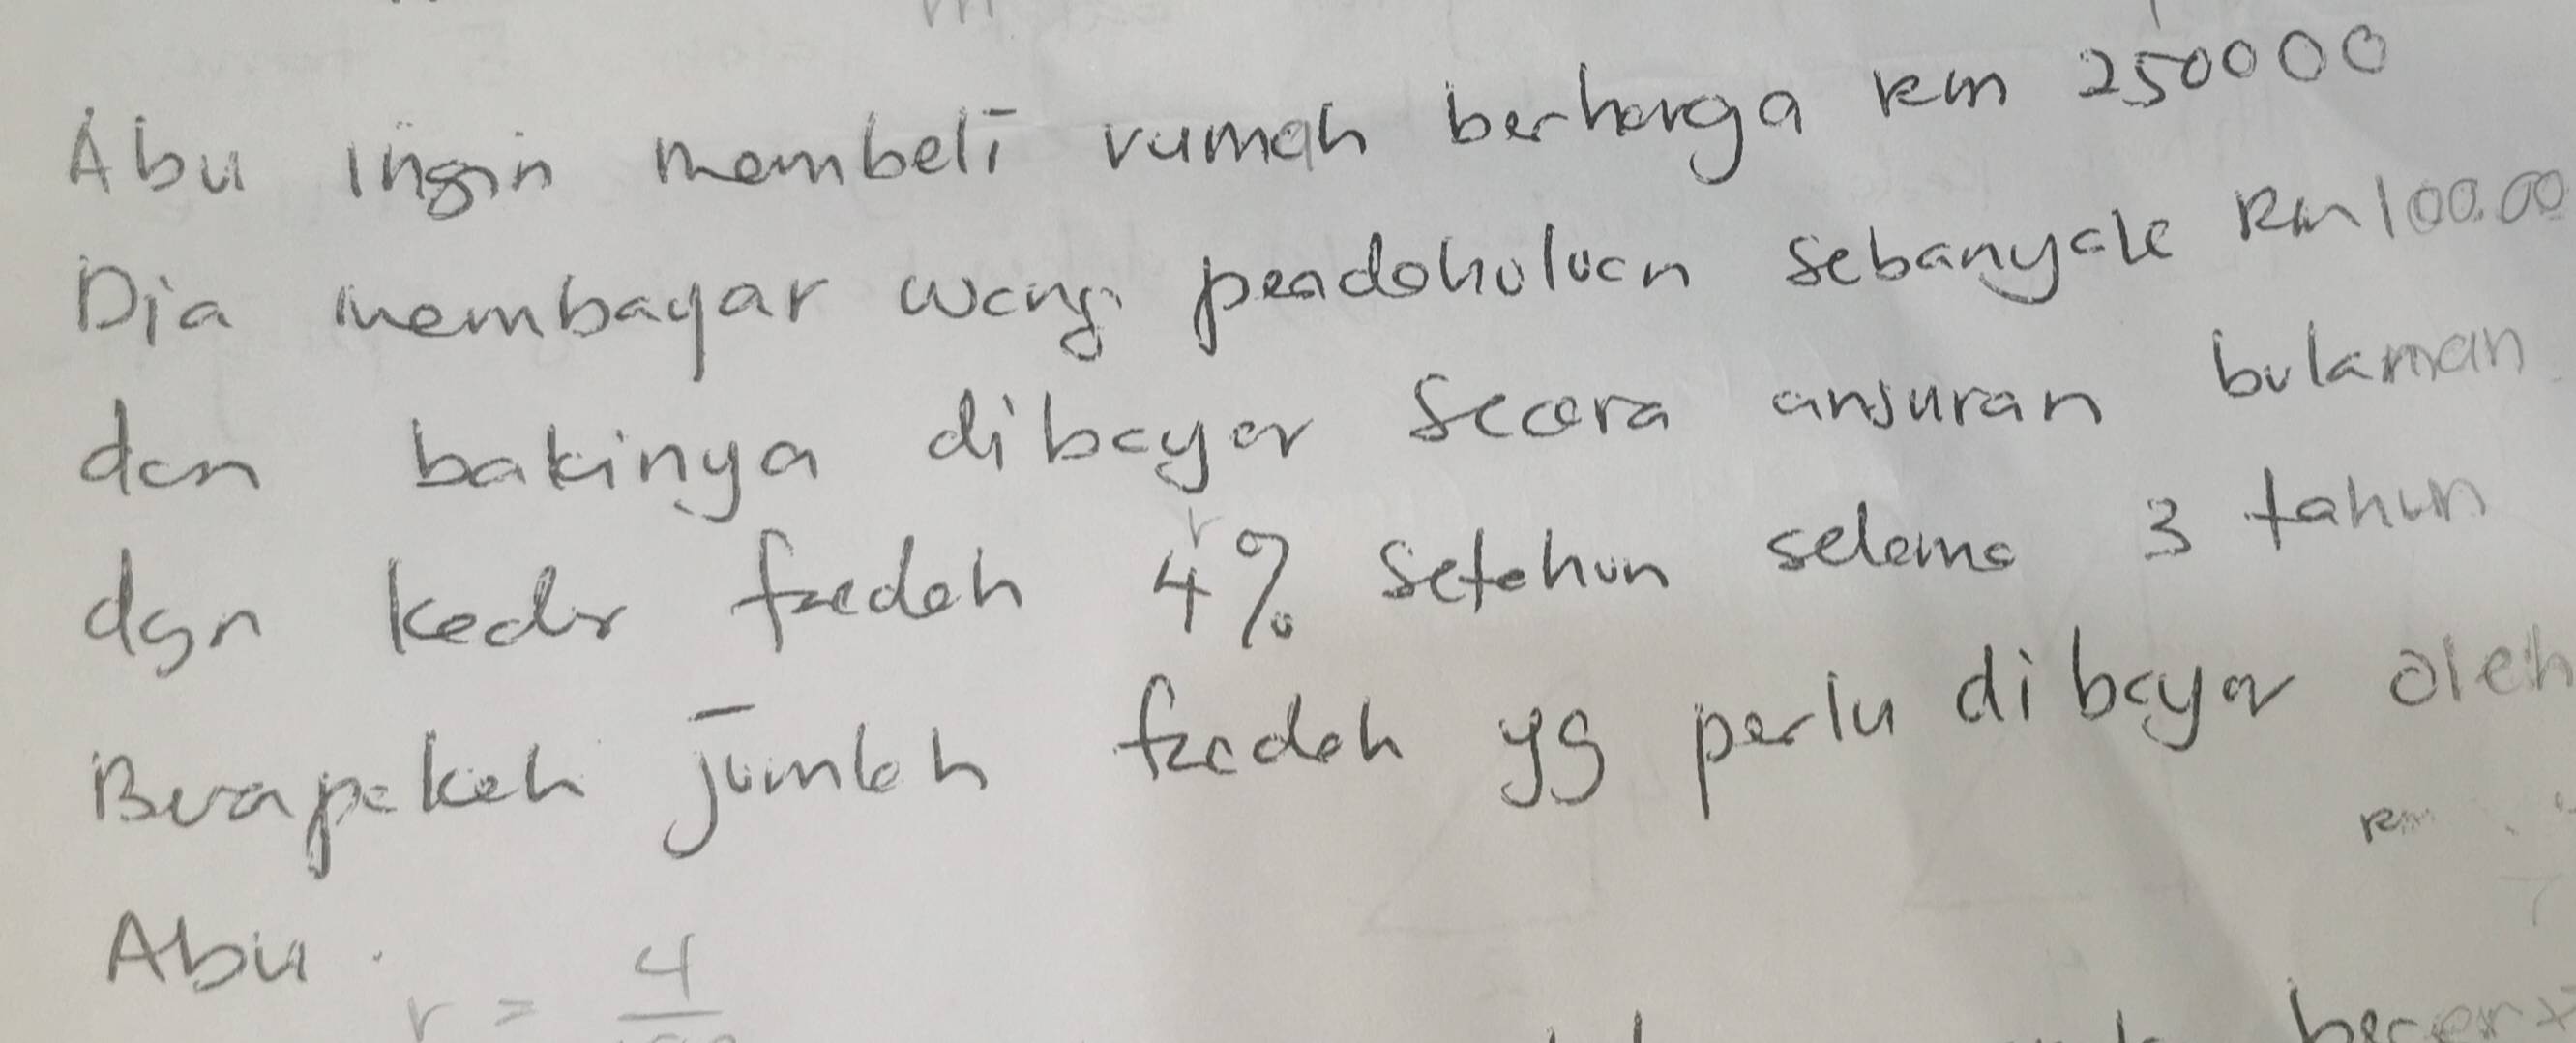 Abu ingin membeli rumah berharga RM 250000
Dia membayar wang pendahuluan sebanyak RM 10000
dan bakinya dibayar secara ansuran bulanan
dgn kadar faedah 4% setahun selama 3 tahun
r
Berapakah jumlah faedah yg perlu dibayar oleh
RM
Abu.
r = 4